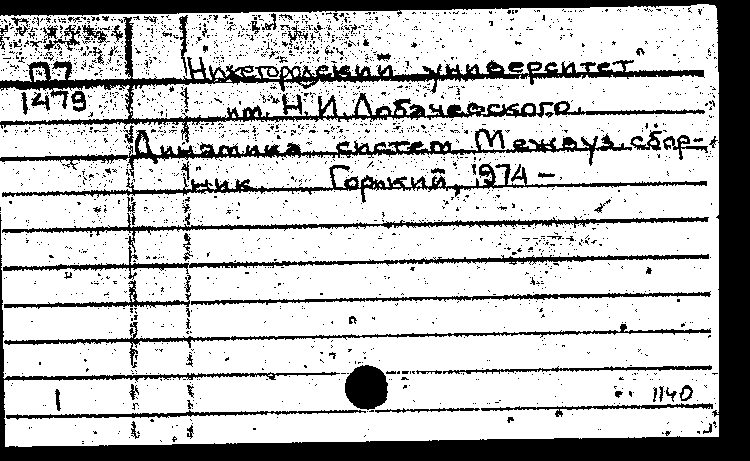 П7
1479
Нижегородский университет
им. Н. И. Лобачевского.
Динамика систем. Межвуз. сбор-
ник. Горький, 1974 —
1
1140